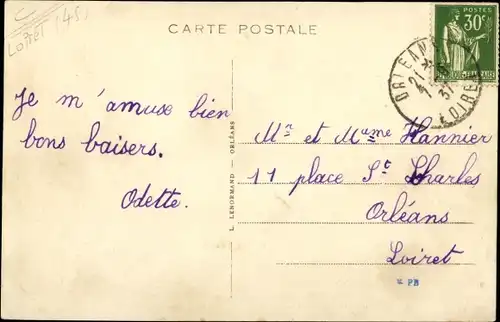 Loiret (45)
CARTE POSTALE
POSTES
30c
ORLEANS
LOIRET
21
37
Je m'amuse bien
bons baisers.
Odette.
L. LENORMAND - ORLÉANS
Mr et Mame Hannier
11 place St Charles
Orléans
Loiret
PB